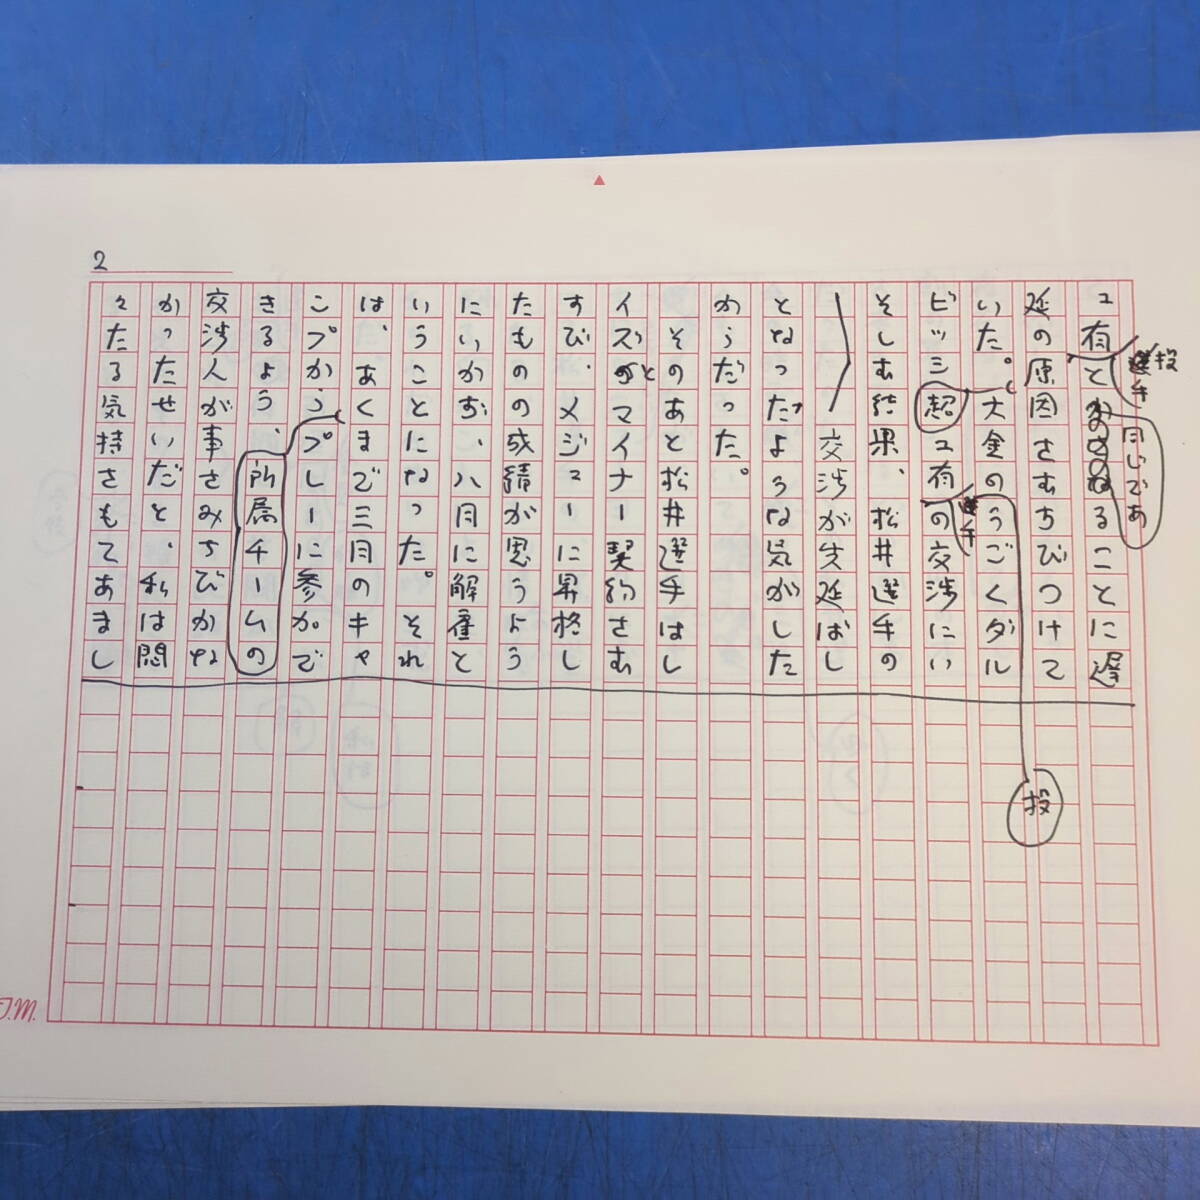 2
ユ有とることに遅
投手
同じであ
延の原因をむすびつけて
いた。大金のうごくダル
ビッシ超ユ有の交渉にい
投
そしむ結果、松井選手の
交渉が先延ばし
となったような気がした
からだった。
そのあと松井選手はレ
イズとマイナー契約をむ
すび、メジャーに昇格し
たものの成績が思うよう
にいかず、八月に解雇と
いうことになった。それ
は、あくまで三月のキャ
ンプからプレーに参加で
きるよう、所属チームの
交渉人が事をみちびかな
かったせいだと、私は悶
々たる気持をもてあまし
J.M.